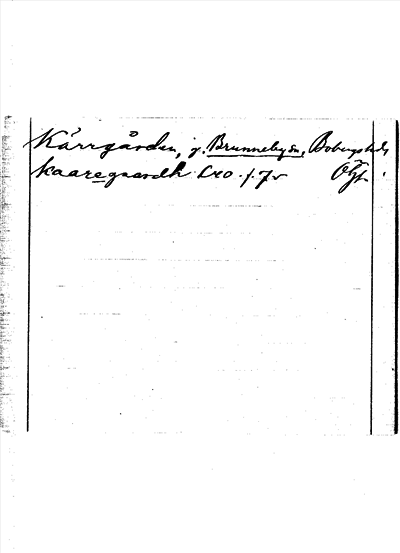 Kärrgården, g. Brunneby sn, Bobergs hd,
kaaregaardh LRO f. 7v Ögl.